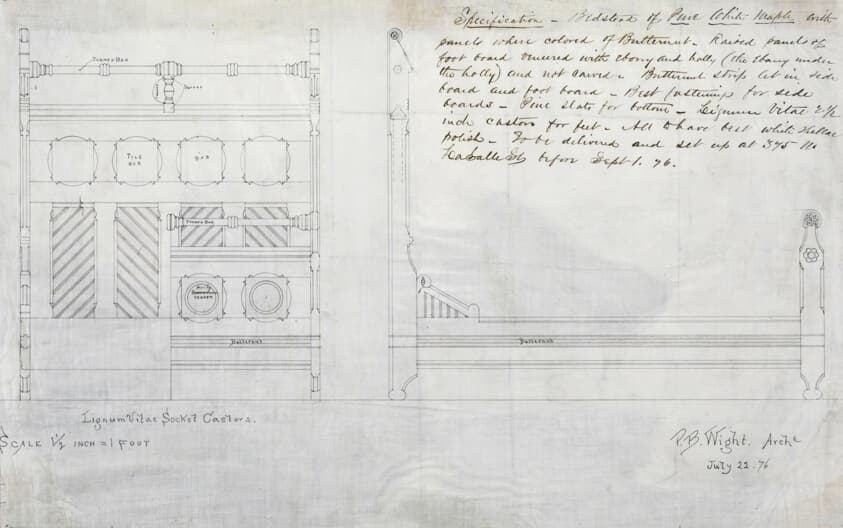 Specification – Bedstead of Pure White Maple, with
panels where colored of Butternut – Raised panels of
foot board veneered with ebony and holly (the ebony under
the holly) and not carved – Butternut strips let in side
board and foot board – Best fastenings for side
boards – Pine slats for bottom – Lignum Vitae 2 1/2
inch castors for feet – All to have best white shellac
polish – To be delivered and set up at 375 No
LaSalle St, before Sept 1. 76.
Turned Rod
Turned
Tile
6x6
6x6
Turned Rod
Holly
veneer
Butternut
Butternut
Lignum Vitae Socket Castors.
Scale 1 1/2 inch = 1 foot
P.B. Wight. Archt
July 22. 76